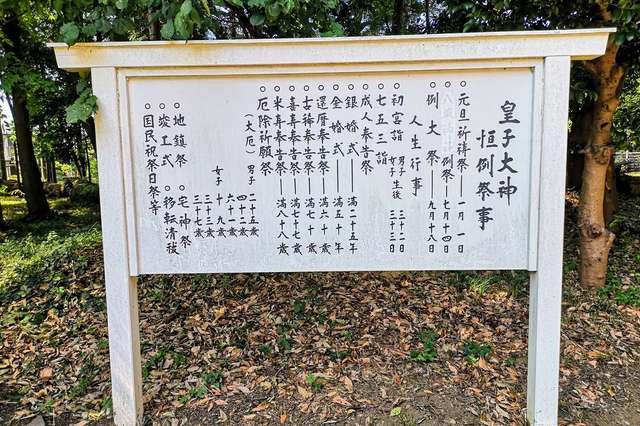 皇子大神
恒例祭事
○元旦祈祷祭――一月一日
例祭――七月十四日
○例大祭――九月十八日
人生行事
○初宮詣 男子生後 三十二日
女子〃 三十三日
○七五三詣
○成人奉告祭
○銀婚式――満二十五年
○金婚式――満五十年
○還暦奉告祭――満六十歳
○古稀奉告祭――満七十歳
○喜寿奉告祭――満七十七歳
○米寿奉告祭――満八十八歳
○厄除祈願祭
(大厄) 男子 二十五歳
四十二歳
六十一歳
女子 十九歳
三十三歳
三十七歳
○地鎮祭 ○宅神祭
○竣工式 ○移転清祓
○国民祝祭日祭等